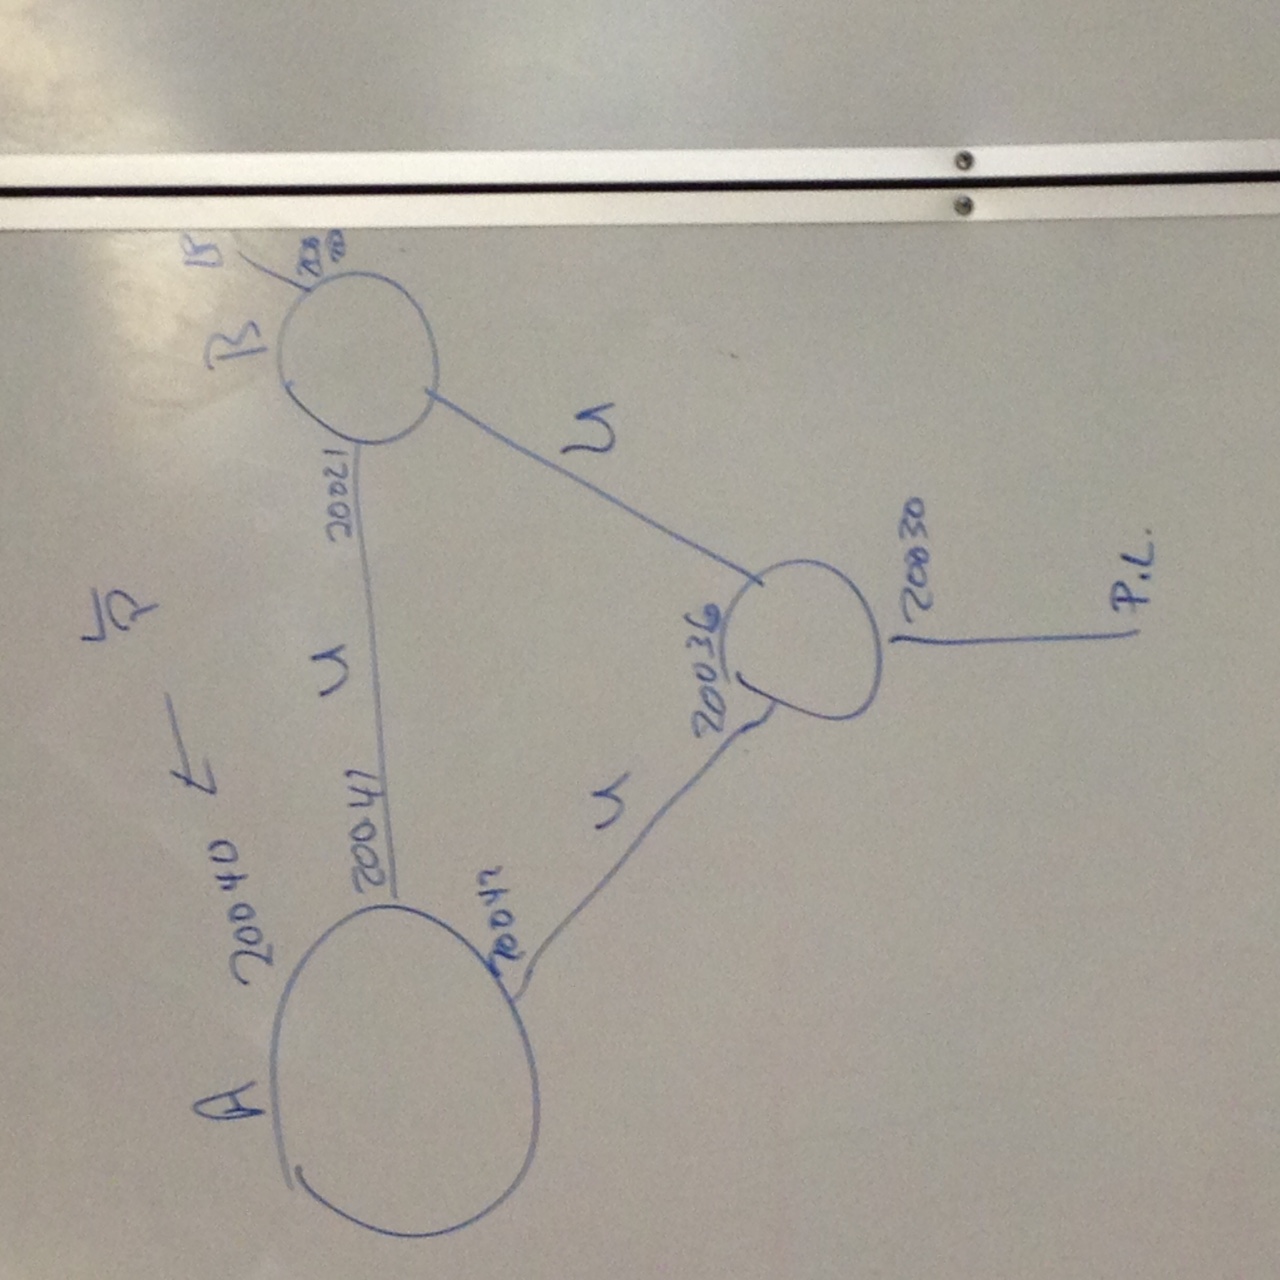 P
A
20040
B
20041
U
20021
20042
U
U
20036
20030
P.L.